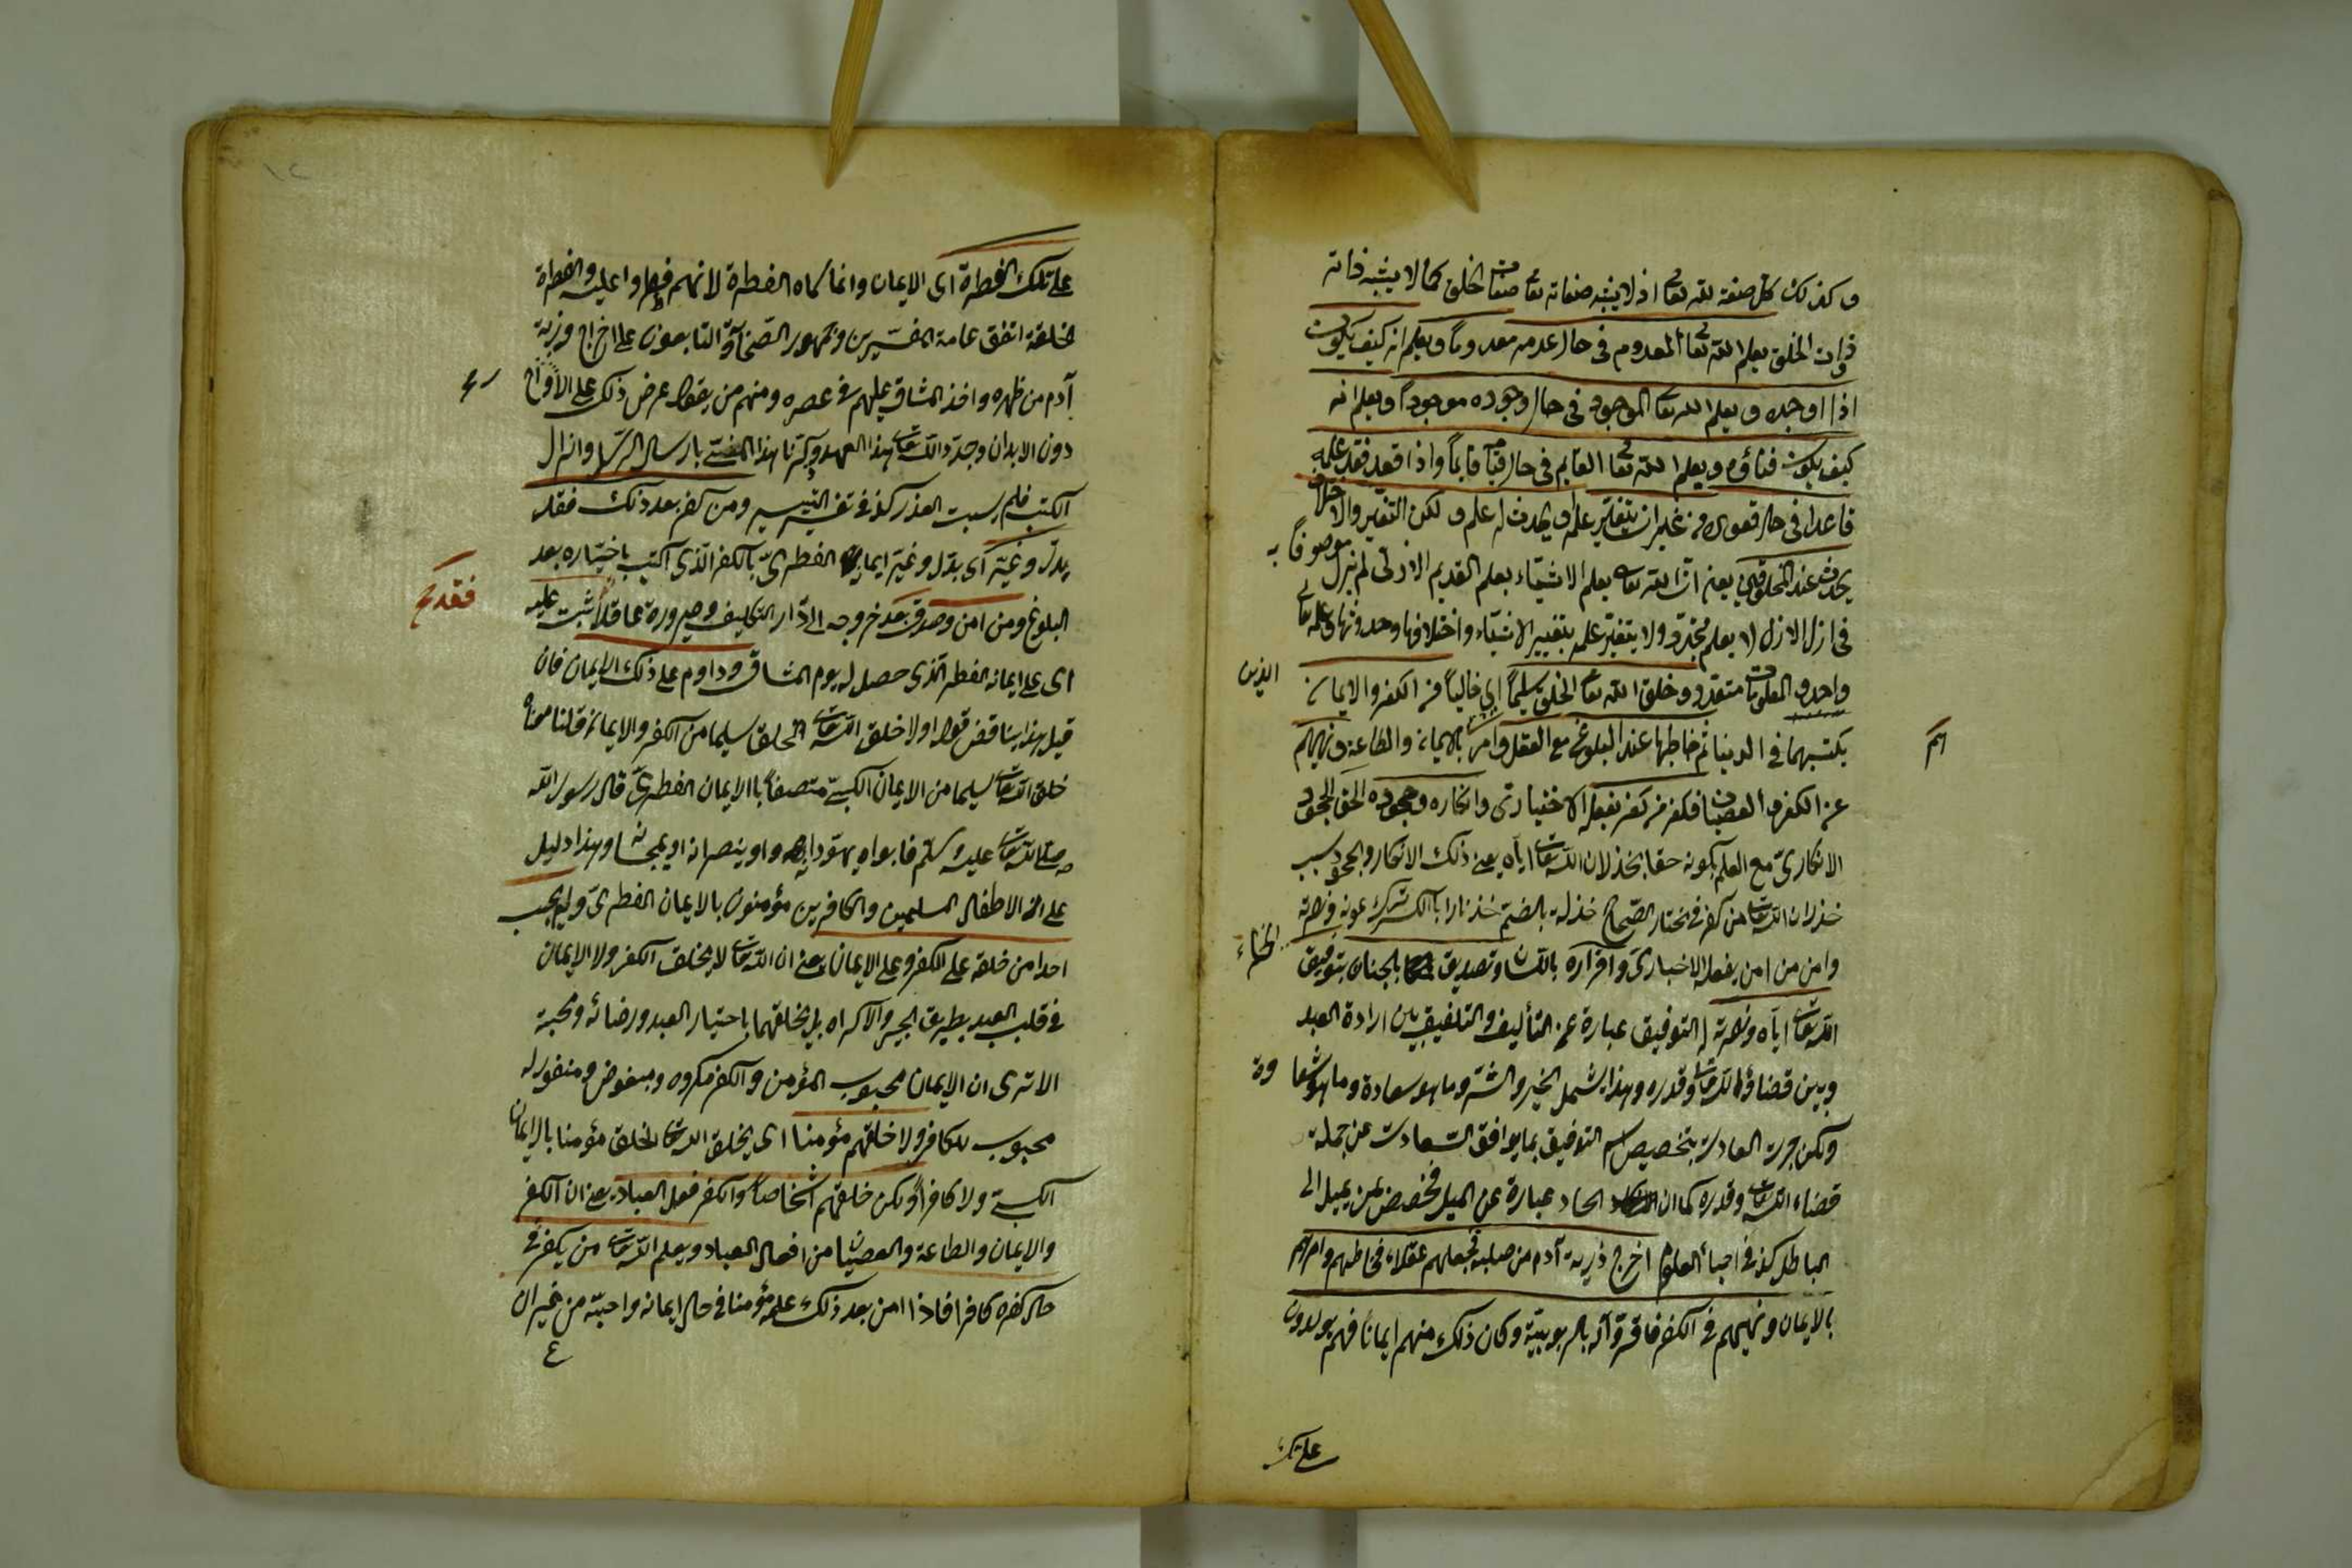 وكذلك كل صفة لله تعا اذ لا يشبه صفاته تعا صفات الخلق كما لا يشبه ذاته
ذوات الخلق يعلم الله تعا المعدوم في حال عدمه معدوماً ويعلم انه كيف يكون
اذا اوجده ويعلم الله تعا الموجود في حال وجوده موجوداً ويعلم انه
كيف يكون فناؤه ويعلم الله تعا القايم في حال قيامه قايماً واذا قعد فقد علمه
قاعدا في حال قعوده من غير ان يتغير علمه او يحدث له علم ولكن التغير والاختلاف
يحدث عند المخلوقين يعني ان الله تعا يعلم الاشياء بعلم القديم الازلي لم يزل موصوفاً به
في ازل الازل لا يعلم متجدد ولا يتغير علمه بتغيير الاشياء واختلافها وحدوثها وعلمه تعا
واحد والمعلومات متعدد وخلق الله تعا الخلق سليماً اي خالياً من الكفر والايمان الذين
يكتسبهما في الدنيا ثم خاطبها عند البلوغ مع العقل وامر بالايمان والطاعة ونهيهم
هم
عن الكفر والعصيان فكفر من كفر بفعله الاختياري وانكاره وجحوده الحق الجحود
الانكاري مع العلم بكونه حقا بخذلان الله تعا اياه يعني ذلك الانكار والجحود بسبب
خذلان الله تعا من كفر في مختار الصحاح خذله بالضم خذنارا بالكسر ترك عونه ونصرته
وامن من امن بفعله الاختياري واقراره باللسان وتصديق بالجنان بتوفيق
الله تعا اياه ونصرته له التوفيق عبارة عن التأليف والتلفيق بين ارادة العبد
وبين قضاؤ الله تعا وقدره وهذا يشمل الخير والشر وما هو سعادة وما هو شقاوة
ولكن جرت العادت بتخصيص اسم التوفيق بما يوافق السعادت عن جملة
قضاء الله تعا وقدره كما ان الحاد عبارة عن الميل فخصص لمن يميل الى
الباطل كذا في احياء العلوم اخرج ذرية آدم من صلبه فجعلهم عقلاء فخاطبهم وامرهم
بالايمان ونهيهم في الكفر فاقروا له بالربوبية وكان ذلك منهم ايماناً فهم يولدون
على تلك
على تلك الفطرة اى الايمان وانما سماه الفطرة لانهم فطروا عليه والفطرة
الخلقة اتفق عامة المفسيرين وجمهور الصحابة والتابعون على اخراج ذرية
آدم من ظهره واخذ المشاق عليهم في عصره ومنهم من يقول عرض ذلك على الارواح
دون الابدان وجدد الله تعا هذا العهد وذكرنا هذا المنسي بارسال الرسل وانزال
الكتب فلم يسبت العذر كذا في تفسير التيسير ومن كفر بعد ذلك فقد
بدل وغير اى بدل وغير ايمانه الفطرى بالكفر الذى اكتسب باختياره بعد
البلوغ ومن امن وصدق بعد خروجه الى دار التكليف وصيرورة عاقلاً ثبت عليه
فقد
اى على ايمانه الفطر الذى حصل له يوم المشاق وداوم على ذلك الايمان فان
قيل هذا يناقض قوله اولا خلق الله تعا الخلق سليما من الكفر والايمان قلنا معناه
خلق الله تعا سليما من الايمان الكسبى متصفاً باالايمان الفطرى قال رسول الله
صلى الله تعا عليه وسلم فابواه يهودانه او ينصرانه او يمجسانه وهذا دليل
على ان الاطفال المسلمين والكافرين مؤمنون بالايمان الفطرى ولم يجب
احدا من خلقه على الكفر وعلى الايمان يعنى ان الله تعا لا يخلق الكفر ولا الايمان
في قلب العبد بطريق الجبر والاكراه بل يخلقهما باختيار العبد ورضائه ومحبة
الا ترى ان الايمان محبوب المؤمن والكفر مكروه ومبغوض ومنفور له
محبوب للكافر ولا خلقهم مؤمنا اى يخلق الله تعا الخلق مؤمنا بالايمان
الكسبى ولا كافراً ولكن خلقهم اشخاصاً والكفر فعل العباد يعنى ان الكفر
والايمان والطاعة والعصيان من افعال العباد ويعلم الله تعا من يكفر في
حال كفره كافرا فاذا امن بعد ذلك علمه مؤمنا في حال ايمانه واحبه من غير ان